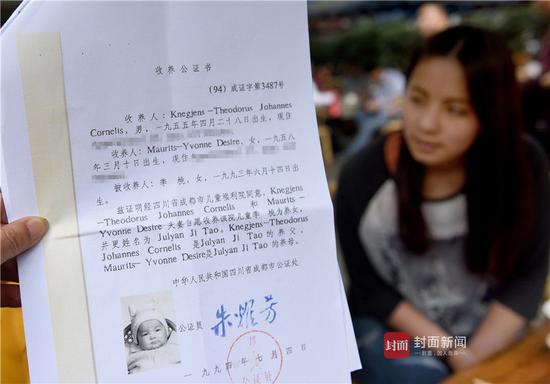 收 养 公 证 书
(94) 成证字第3487号
收 养 人：Knegjens—Theodorus Johannes
Cornelis，男，一九五五年四月二十八日出生，现住
收养人：Maurits—Yvonne Desire，女，一九五八
年三月十日出生，现住
被收养人：李 桃，女，一九九三年六月十四日出
生。
兹证明经四川省成都市儿童福利院同意，Knegjens
—Theodorus Johannes Cornelis 和 Maurits—
Yvonne Desire 夫妻自愿收养该院儿童李 桃为养女，
并更姓名为 Julyan Ji Tao。Knegjens—Theodorus
Johannes Cornelis 是Julyan Ji Tao 的 养 父。
Maurits— Yvonne Desire是Julyan Ji Tao的养母。
中华人民共和国四川省成都市公证处
公证员
一九九四年 七 月 四 日
封面
封面新闻